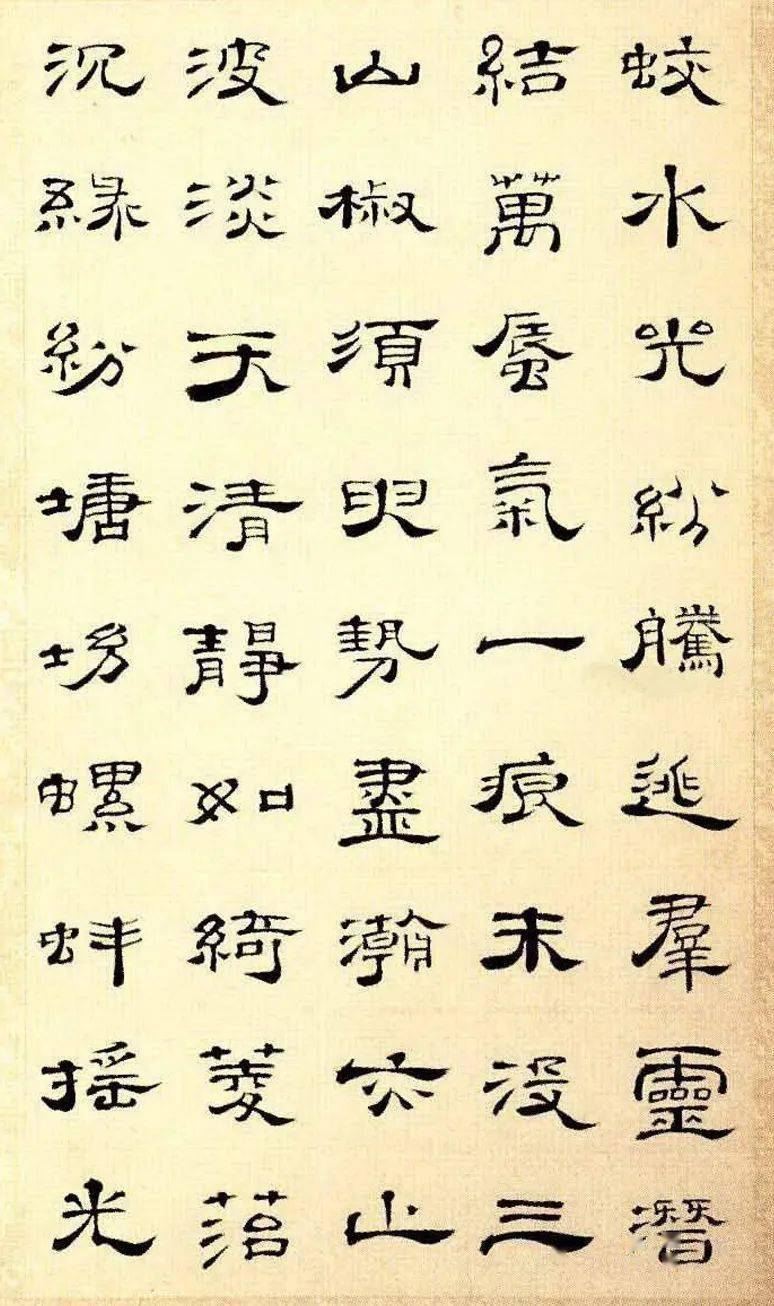 蛟水光紛騰逃羣靈潛
結萬蜃氣一痕未没三
山椒須臾勢盡瀚亦止
波淡天清靜如綺菱菭
沉緑紛塘坳螺蚌摇光